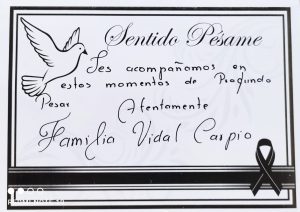 Sentido Pésame
Les acompañamos en
estos momentos de Profundo
Pesar Atentamente
Familia Vidal Carpio